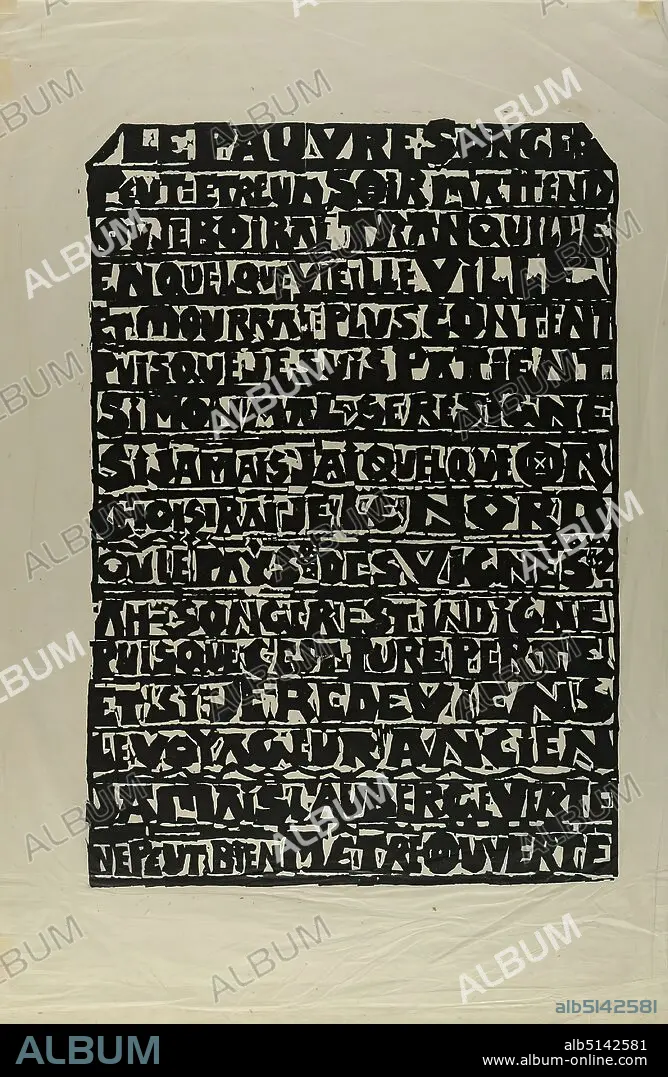 LE PAUVRE SONGE
PEUT-ETRE UN SOIR M'ATTEND
OU JE BOIRAI TRANQUILLE
EN QUELQUE VIEILLE VILLE
ET MOURRAI PLUS CONTENT
PUISQUE JE SUIS PATIENT
SI MON MAL SE RESIGNE
SI JAMAIS J'AI QUELQUE OR
CHOISIRAI JE LE NORD
OU LE PAYS DES VIGNES?
AH SONGER EST INDIGNE
PUISQUE C'EST PURE PERTE!
ET SI JE REDEVIENS
LE VOYAGEUR ANCIEN
JAMAIS L'AUBERGE VERTE
NE PEUT BIEN M'ETRE OUVERTE
alb5142581
ALBUM
alb5142581
www.album-online.com